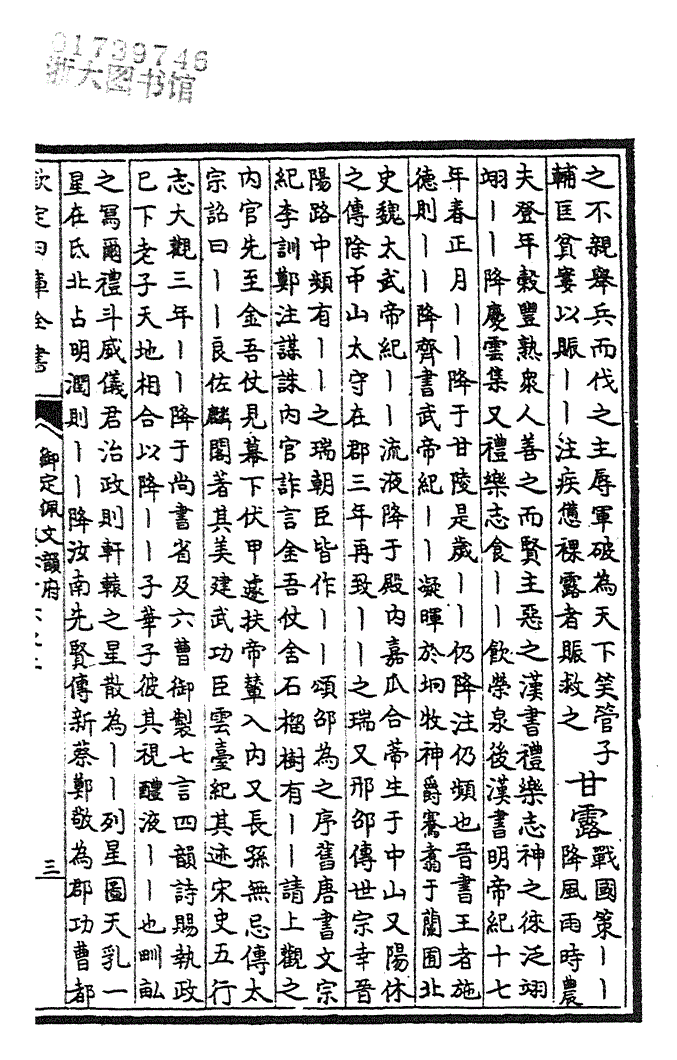 01739746
浙大图书馆
之不親舉兵而伐之主辱軍破為天下笑管子
輔匡貧窶以賑丨丨注疾憊裸露者賑救之
甘露
戰國策丨丨
降風雨時農
夫登年穀豐熟衆人善之而賢主惡之漢書禮樂志神之徠泛翊
翊丨丨降慶雲集又禮樂志食丨丨飲榮泉後漢書明帝紀十七
年春正月丨丨降于甘陵是歲丨丨仍降注仍頻也晉書王者施
德則丨丨降齊書武帝紀丨丨凝暉於坰牧神爵騫翥于蘭囿北
史魏太武帝紀丨丨流液降于殿内嘉瓜合蒂生于中山又陽休
之傳除中山太守在郡三年再致丨丨之瑞又邢邵傳世宗幸晉
陽路中頻有丨丨之瑞朝臣皆作丨丨頌邵為之序舊唐書文宗
紀李訓鄭注謀誅内官詐言金吾仗舍石榴樹有丨丨請上觀之
内官先至金吾仗見幕下伏甲遽扶帝輦入内又長孫無忌傳太
宗詔曰丨丨良佐麟閣著其美建武功臣雲臺紀其迹宋史五行
志大觀三年丨丨降于尚書省及六曹御製七言四韻詩賜執政
已下老子天地相合以降丨丨子華子彼其視醴液丨丨也甽畝
之寫爾禮斗威儀君治政則軒轅之星散為丨丨列星圖天乳一
星在氐北占明潤則丨丨降汝南先賢傳新蔡鄭敬為郡功曹都
欽定四庫全書
御定佩文韻府
三